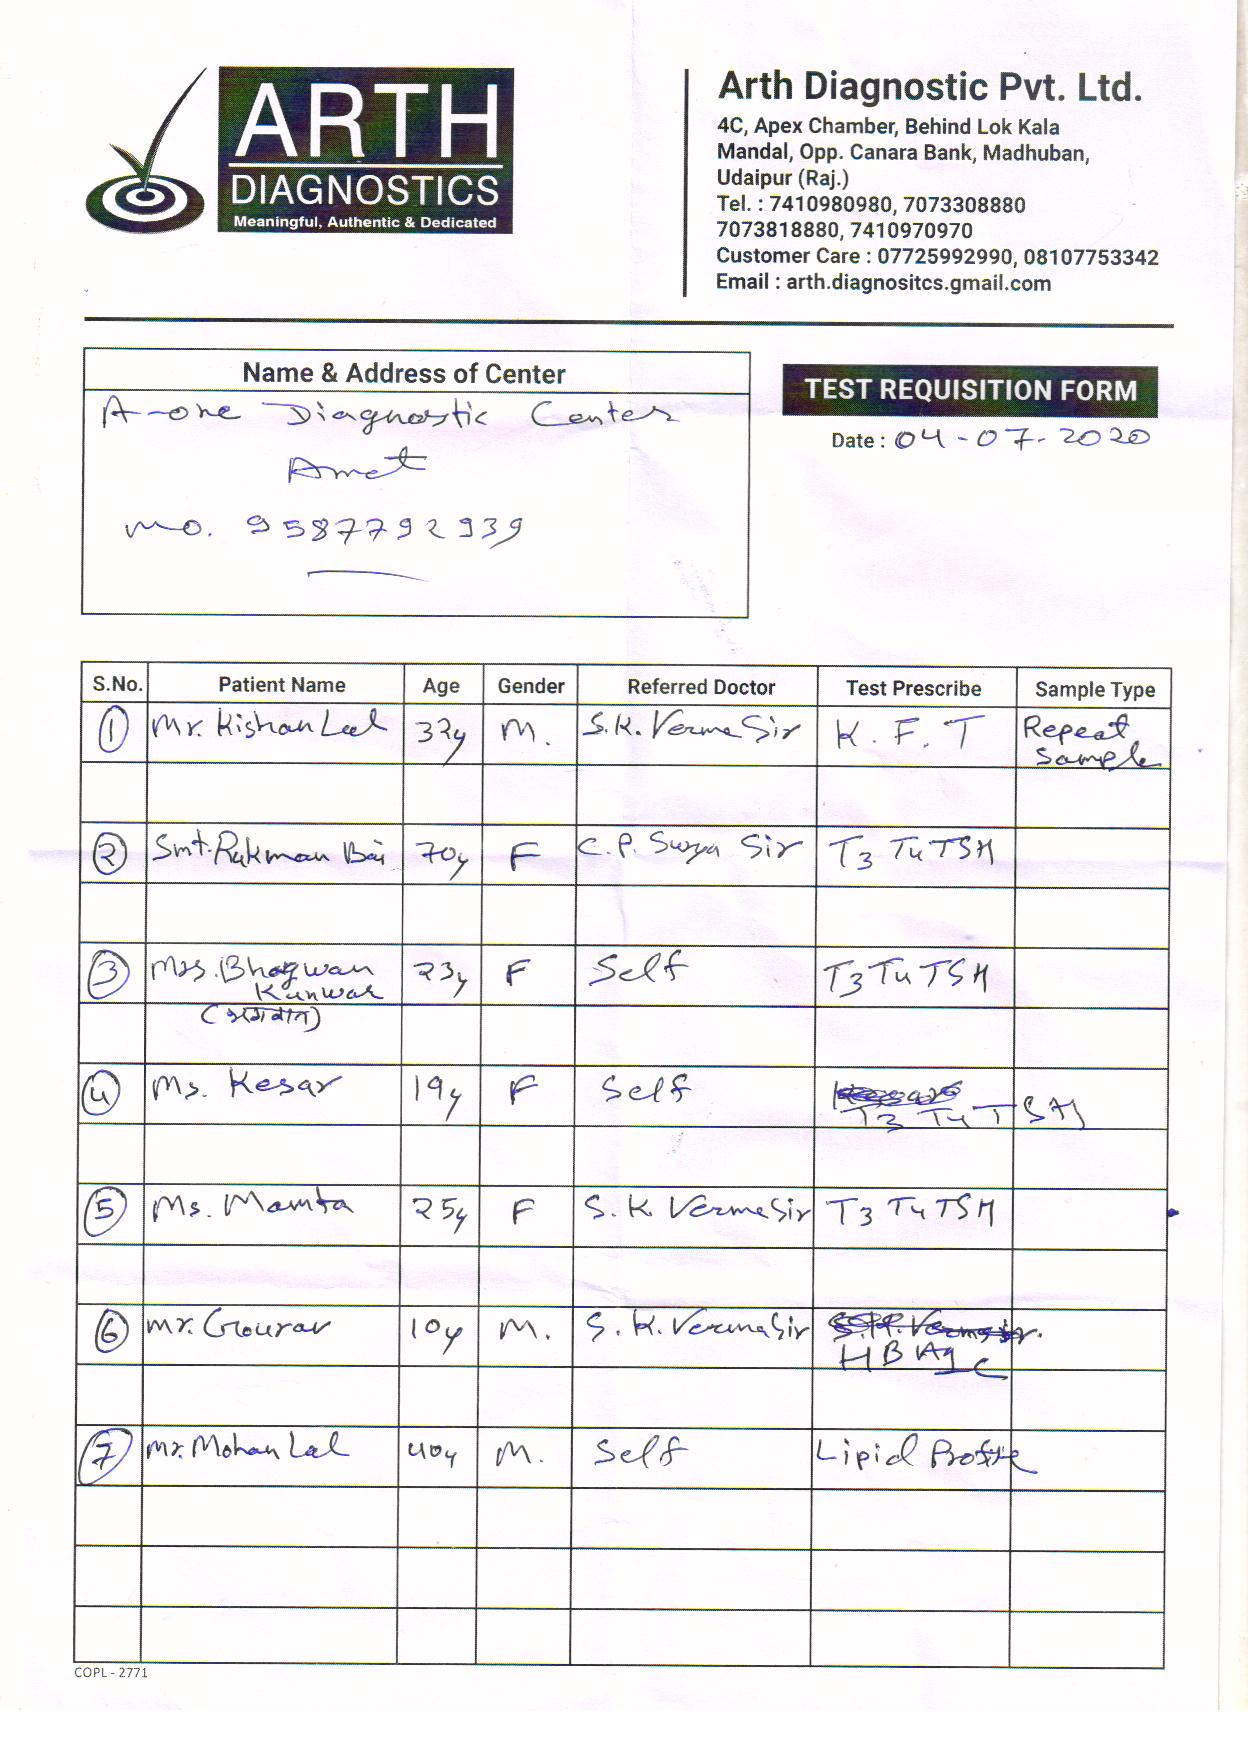 ARTH
DIAGNOSTICS
Meaningful, Authentic & Dedicated
Arth Diagnostic Pvt. Ltd.
4C, Apex Chamber, Behind Lok Kala
Mandal, Opp. Canara Bank, Madhuban,
Udaipur (Raj.)
Tel. : 7410980980, 7073308880
7073818880, 7410970970
Customer Care : 07725992990, 08107753342
Email : arth.diagnositcs.gmail.com
Name & Address of Center
A-one Diagnostic Center
Amet
mo. 9587792939
TEST REQUISITION FORM
Date : 04-07-2020
S.No. Patient Name Age Gender Referred Doctor Test Prescribe Sample Type
1 Mr. Kishan Lal 32y M. S.K. Verma Sir K.F.T Repeat
Sample
2 Smt. Rukman Bai 70y F C.P. Surya Sir T3 T4 TSH
3 Mrs. Bhagwan 23y F Self T3 T4 TSH
Kunwar
(भगवान)
4 Ms. Kesar 19y F Self
T3 T4 TSH
5 Ms. Mamta 25y F S.K. Verma Sir T3 T4 TSH
6 Mr. Gourav 10y M. S.K. Verma Sir S.K. Verma Sir.
HBAgC
7 Mr. Mohan Lal 40y M. Self Lipid Profile
COPL - 2771